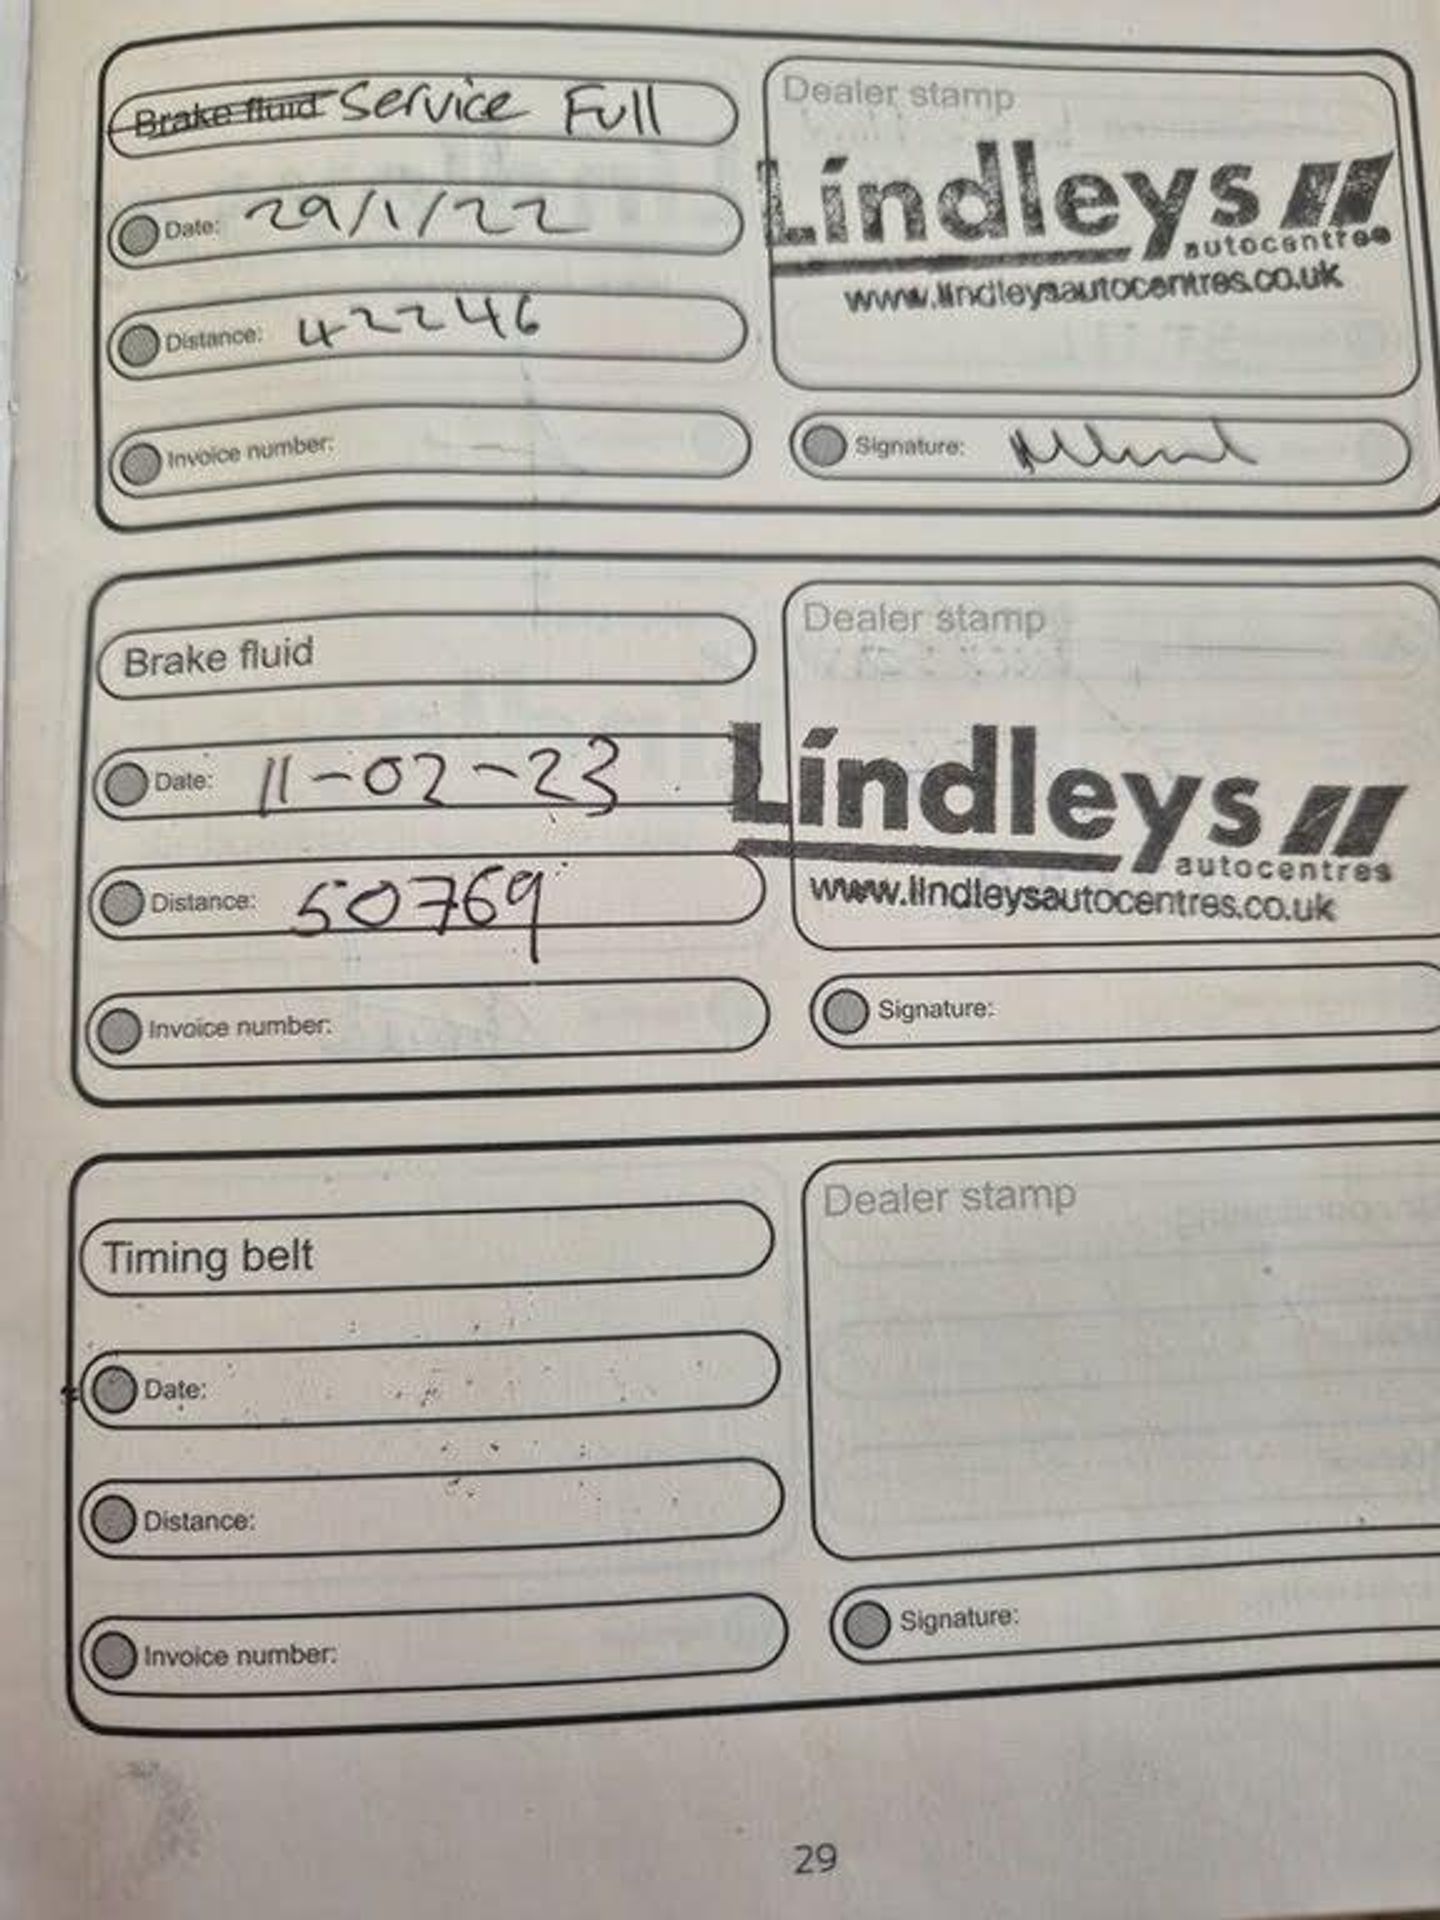 Brake fluid Service Full
Dealer stamp
Lindleys
autocentres
www.lindleysautocentres.co.uk
Date: 29/1/22
Distance: 42246
Invoice number:
Signature:
Brake fluid
Dealer stamp
Date: 11-02-23
Lindleys
autocentres
www.lindleysautocentres.co.uk
Distance: 50769
Invoice number:
Signature:
Timing belt
Dealer stamp
Date:
Distance:
Invoice number:
Signature:
29